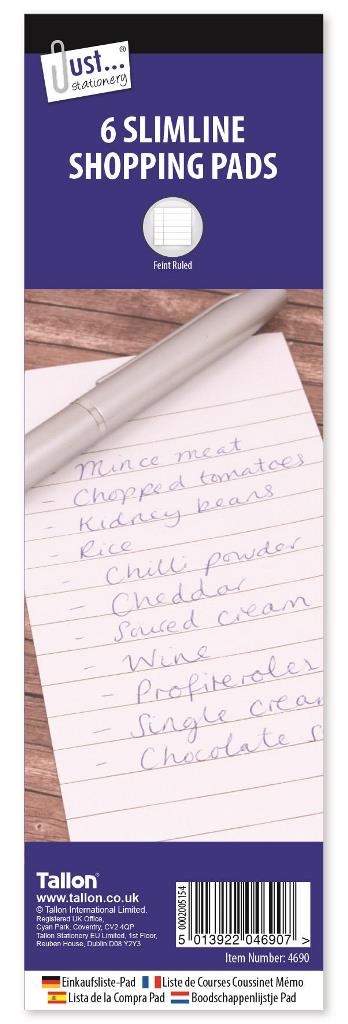 Just...®
stationery
6 SLIMLINE
SHOPPING PADS
Feint Ruled
- Mince meat
- Chopped tomatoes
- Kidney beans
- Rice
- Chilli powder
- Cheddar
- Soured cream
- Wine
- Profiteroles
- Single crea
- Chocolate s
Tallon®
www.tallon.co.uk
© Tallon International Limited.
Registered UK Office,
Cyan Park, Coventry, CV2 4QP
Tallon Stationery EU Limited, 1st Floor,
Reuben House, Dublin D08 Y2Y3
5 0002005154
5 013922 046907 >
Item Number: 4690
Einkaufsliste-Pad Liste de Courses Coussinet Mémo
Lista de la Compra Pad Boodschappenlijstje Pad